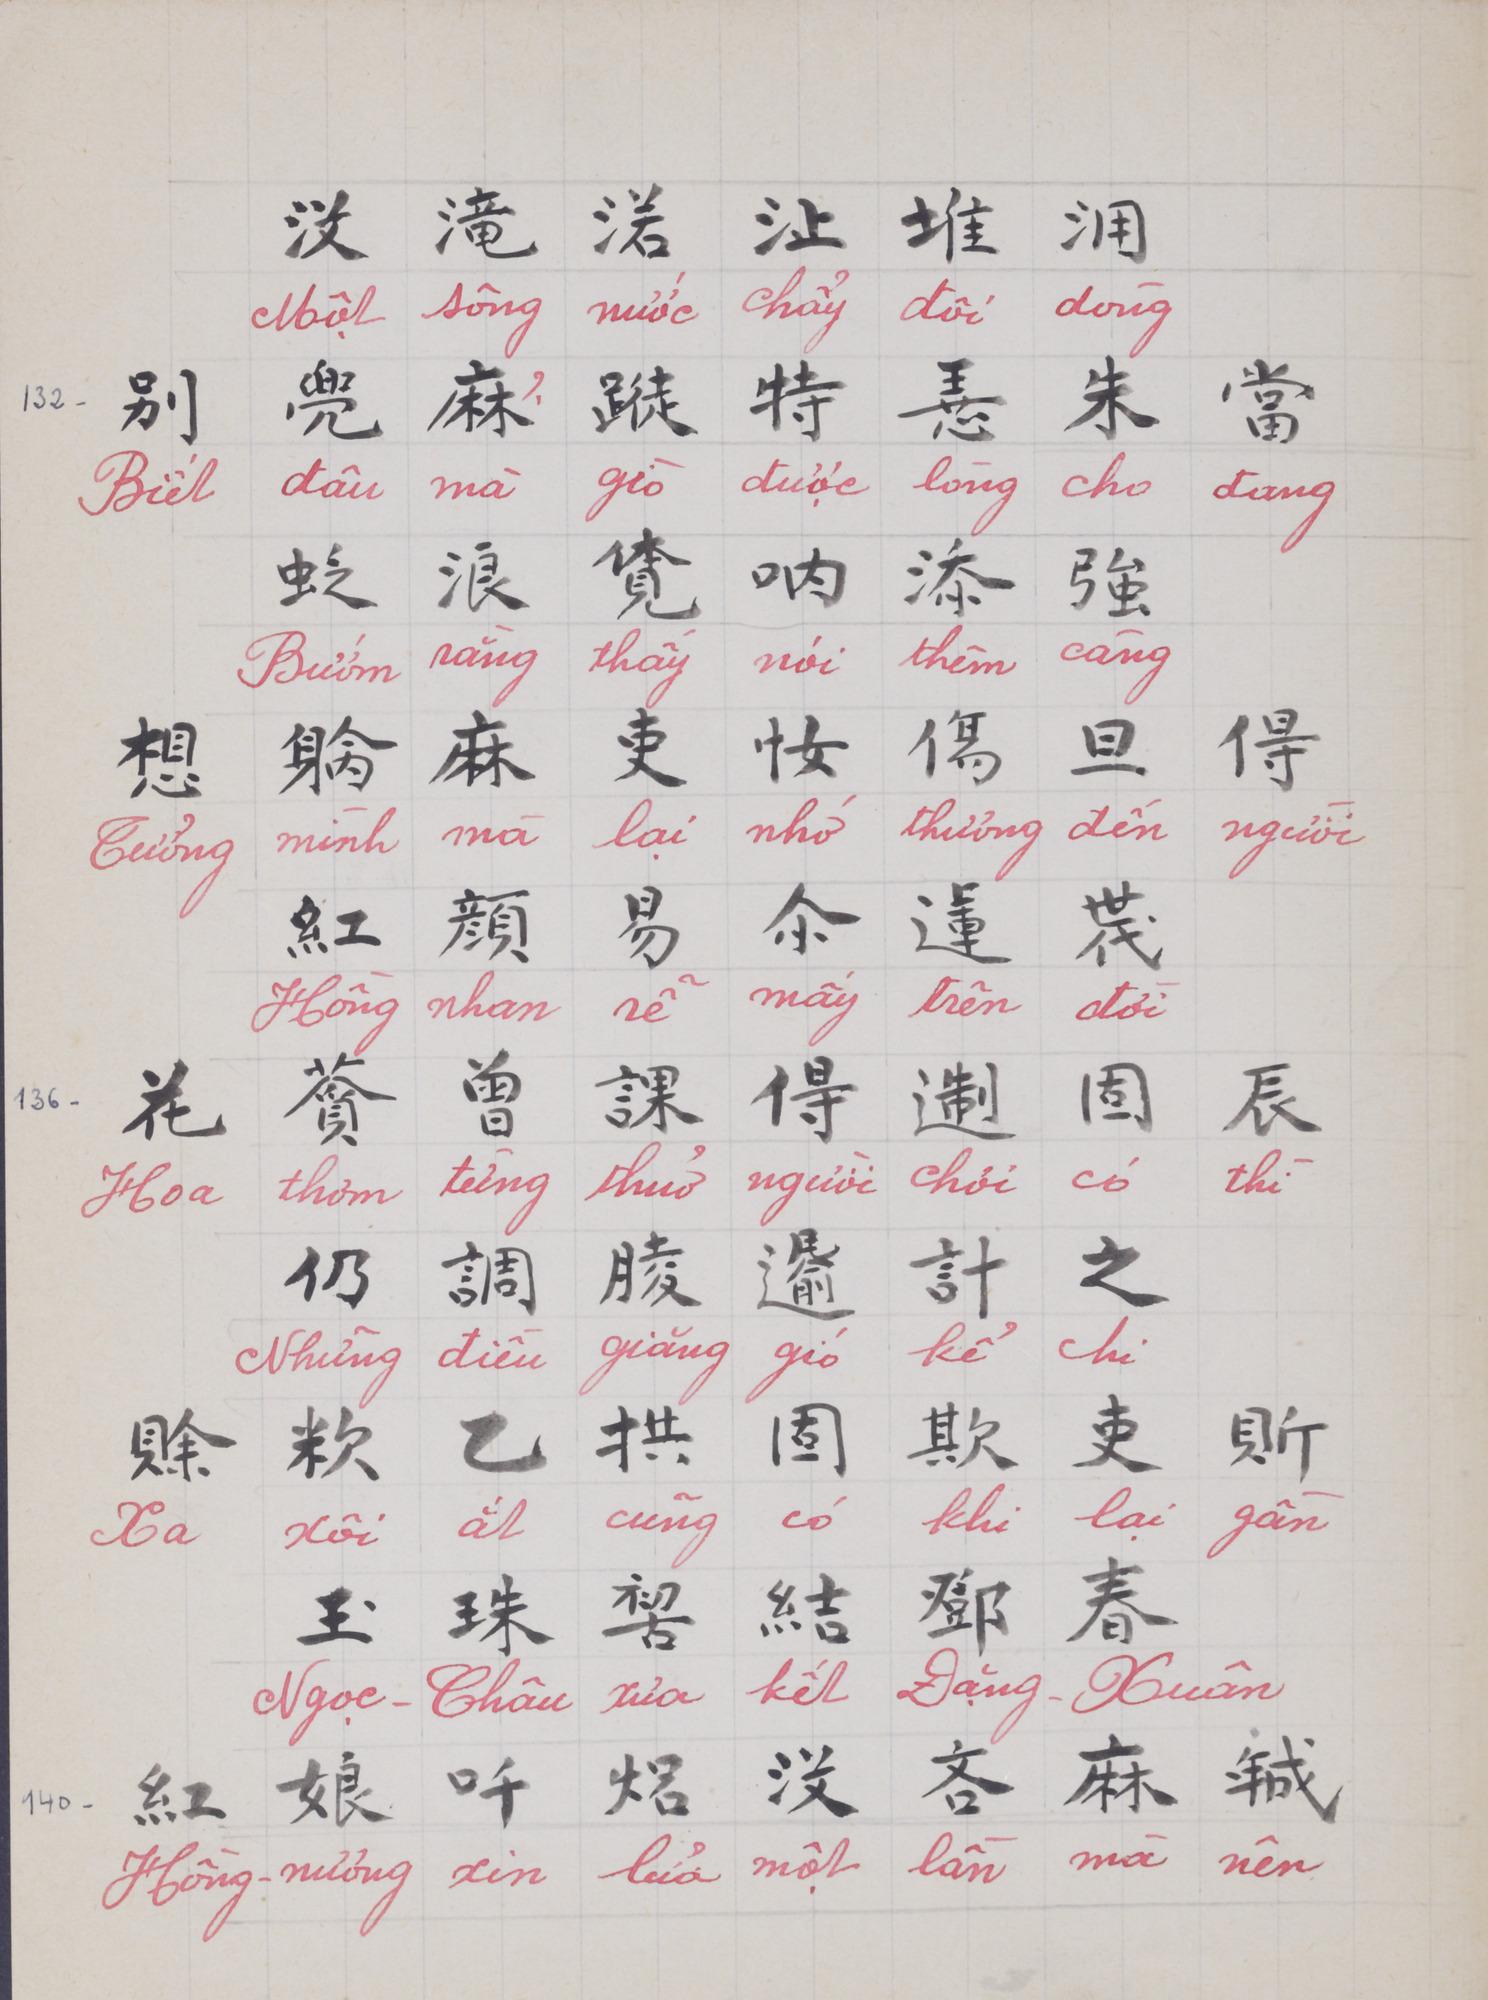 沒 滝 渃 沚 堆 洞
Một sông nước chảy đôi dòng
132- 别 兜 麻 蹤 特 𢚸 朱 當
Biết đâu mà giò được lòng cho đang
浪 吶 添 強
Bướm rằng thấy nói thêm càng
想 麻 吏 傷 旦 得
Tưởng mình mà lại nhớ thương đến người
紅 顔 易 尒 蓮
Hồng nhan rễ mấy trên đời
136- 花 曾 課 得 固 辰
Hoa thơm từng thuở người chơi có thì
仍 調 計 之
Những điều giăng gió kể chi
賖 乙 拱 固 欺 吏
Xa xôi ắt cũng có khi lại gần
玉 珠 結 鄧 春
Ngọc - Châu xưa kết Đặng - Xuân
140- 紅 娘 吀 焒 沒 吝 麻
Hồng - nương xin lửa một lần mà nên